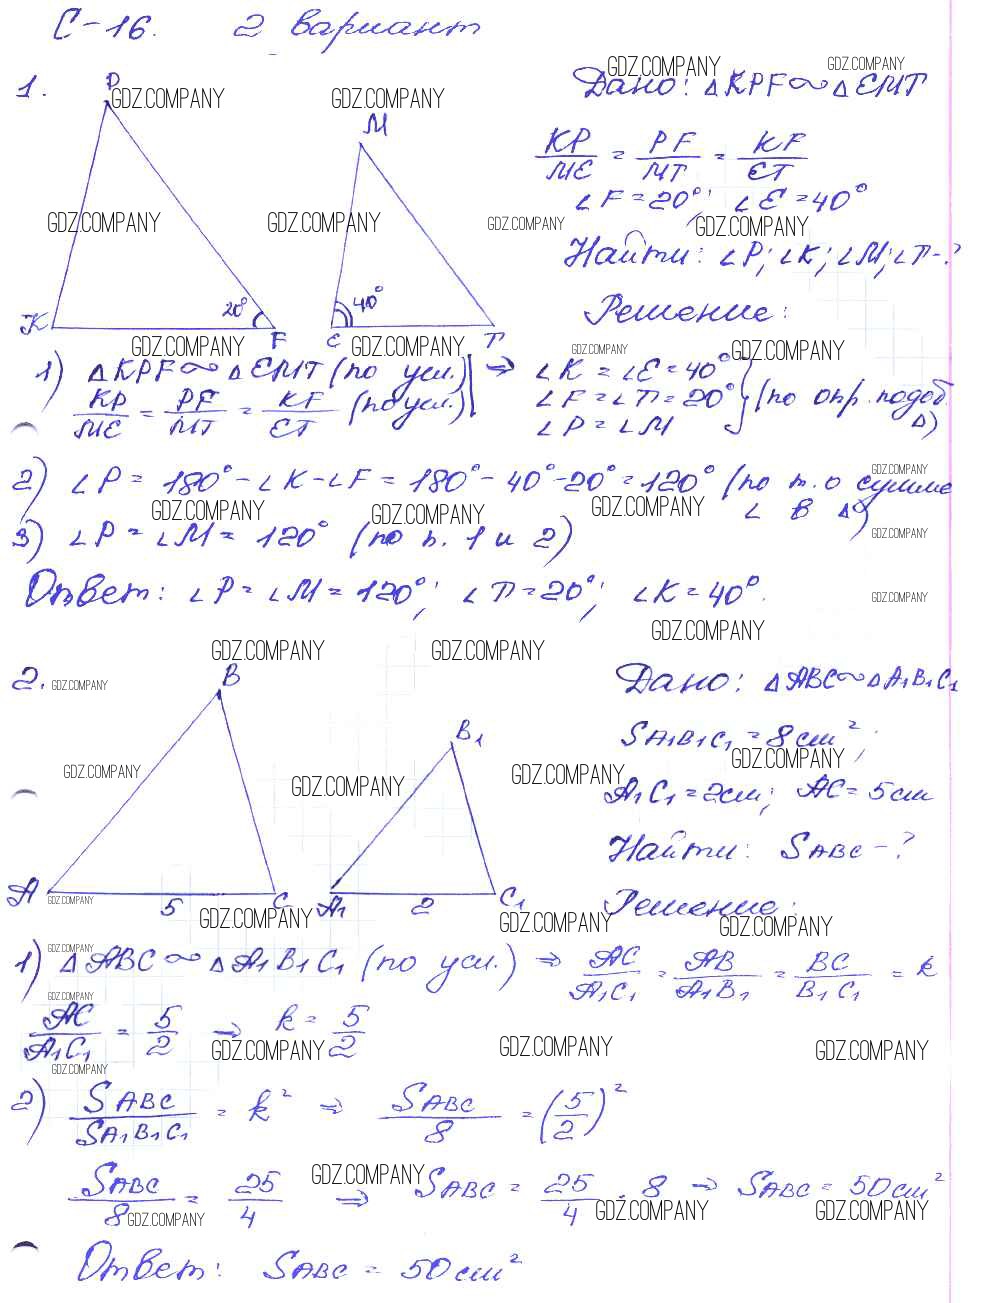 С-16. 2 вариант
1.
P
M
K
20°
F
E
40°
T
Дано: △KPF∾△EMT
KP/ME = PF/MT = KF/ET
∠F=20°; ∠E=40°
Найти: ∠P; ∠K; ∠M; ∠T-?
Решение:
1) △KPF∾△EMT (по усл.) ⇒ ∠K=∠E=40°
KP/ME = PF/MT = KF/ET (по усл.) ∠F=∠T=20° (по опр. подоб. △)
∠P=∠M
2) ∠P = 180°-∠K-∠F = 180°-40°-20°=120° (по т. о сумме
∠ в △)
3) ∠P=∠M=120° (по п. 1 и 2)
Ответ: ∠P=∠M=120°; ∠T=20°; ∠K=40°.
2.
B
B₁
A
5
C
A₁
2
C₁
Дано: △ABC∾△A₁B₁C₁
SA₁B₁C₁=8см²;
A₁C₁=2см; AC=5см
Найти: SABC-?
Решение:
1) △ABC∾△A₁B₁C₁ (по усл.) ⇒ AC/A₁C₁ = AB/A₁B₁ = BC/B₁C₁ = k
AC/A₁C₁ = 5/2 ⇒ k = 5/2
2) SABC/SA₁B₁C₁ = k² ⇒ SABC/8 = (5/2)²
SABC/8 = 25/4 ⇒ SABC = 25/4 · 8 ⇒ SABC = 50см²
Ответ: SABC = 50см²
GDZ.COMPANY